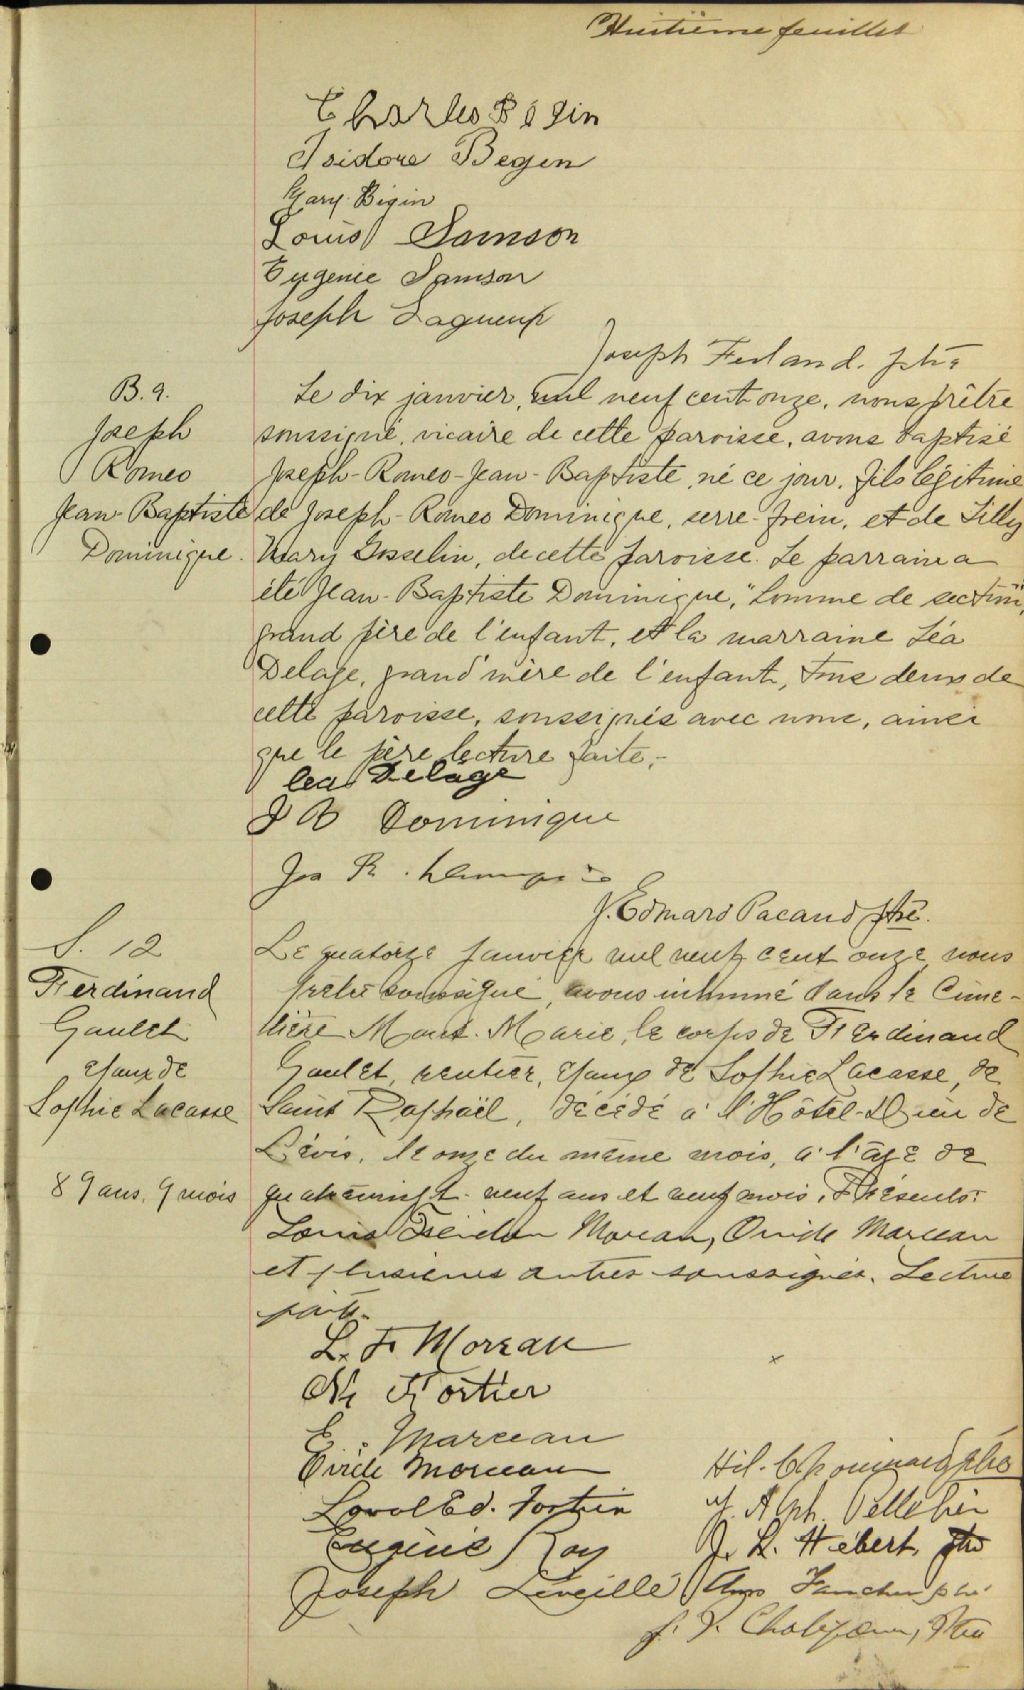 Huitième feuillet
Charles Bégin
Isidore Begin
Mary Bégin
Louis Samson
Eugenie Samson
Joseph Lagueux
Joseph Ferland, ptre
B. 9.
Joseph
Romeo
Jean-Baptiste
Dominique.
Le dix janvier, mil neuf cent onze, nous prêtre
soussigné, vicaire de cette paroisse, avons baptisé
Joseph-Romeo-Jean-Baptiste, né ce jour, fils légitime
de Joseph-Romeo Dominique, serre-frein, et de Lilly
Mary Gosselin, de cette paroisse. Le parrain a
été Jean-Baptiste Dominique, "homme de section",
grand père de l'enfant, et la marraine Léa
Delage, grand'mère de l'enfant, tous deux de
cette paroisse, soussignés avec nous, ainsi
que le père, lecture faite.-
lea Delage
J B Dominique
Jos R.
J. Edmard Pacaud ptre.
S. 12
Ferdinand
Gaulet
époux de
Sophie Lacasse
89 ans, 9 mois
Le quatorze janvier mil neuf cent onze, nous
prêtre soussigné, avons inhumé dans le Cime-
tière Mont-Marie, le corps de Ferdinand
Gaulet, rentier, époux de Sophie Lacasse, de
Saint Raphaël, décédé à l'Hôtel-Dieu de
Lévis, le onze du même mois, à l'âge de
quatrevingt-neuf ans et neuf mois. Présents:
Louis Moreau, Ovide Marceau
et plusieurs autres soussignés. Lecture
faite.
L. F. Moreau
Fortier
E. Marceau
Ovide Morceau
Ed. Fortier
Eugène Roy
Joseph Léveillé
Hil. Chouinard ptre
J. Alph. Pelletier
J. L. Hébert, ptre
Faucher ptre